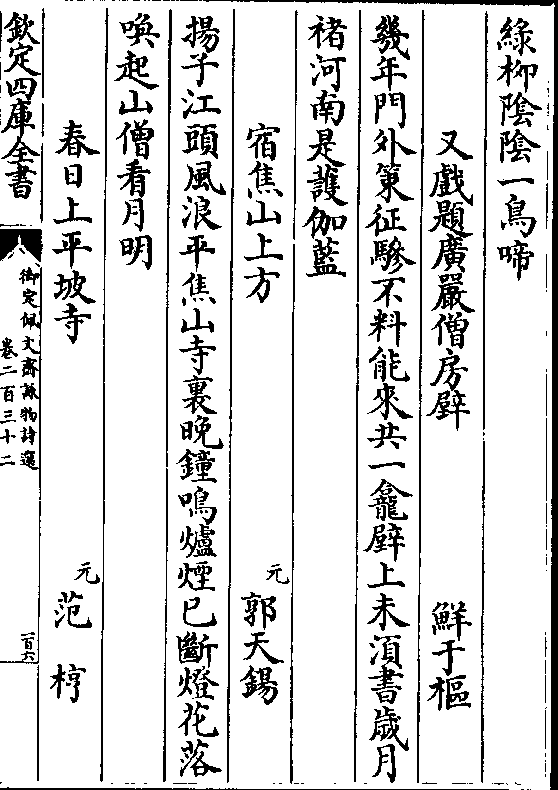 綠柳陰陰一鳥啼
又戲題廣嚴僧房壁 鮮于樞
幾年門外策征驂不料能來共一龕壁上未須書歲月
褚河南是護伽藍
宿焦山上方 元 郭天錫
揚子江頭風浪平焦山寺裏晚鐘鳴爐煙已斷燈花落
喚起山僧看月明
春日上平坡寺 元 范梈
欽定四庫全書
御定佩文齋詠物詩選
卷二百三十二
一百六